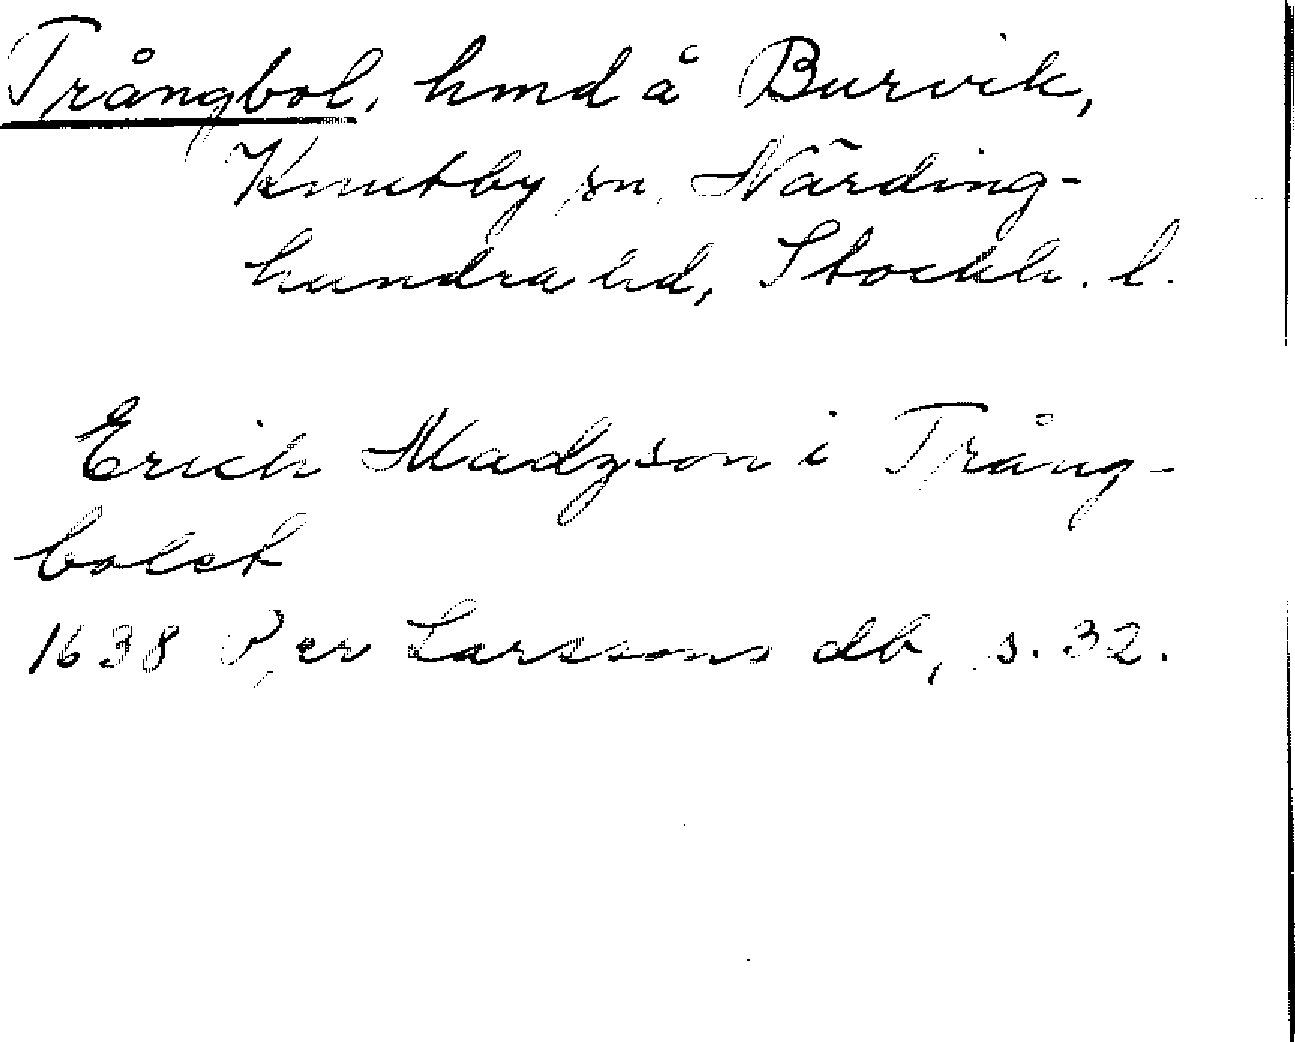 Trångbol, hmd å Burvik,
Knutby sn, Närding-
hundra hd, Stockh. l.
Erich Madzson i Trång-
bolet
1638 Per Larssons db, s. 32.